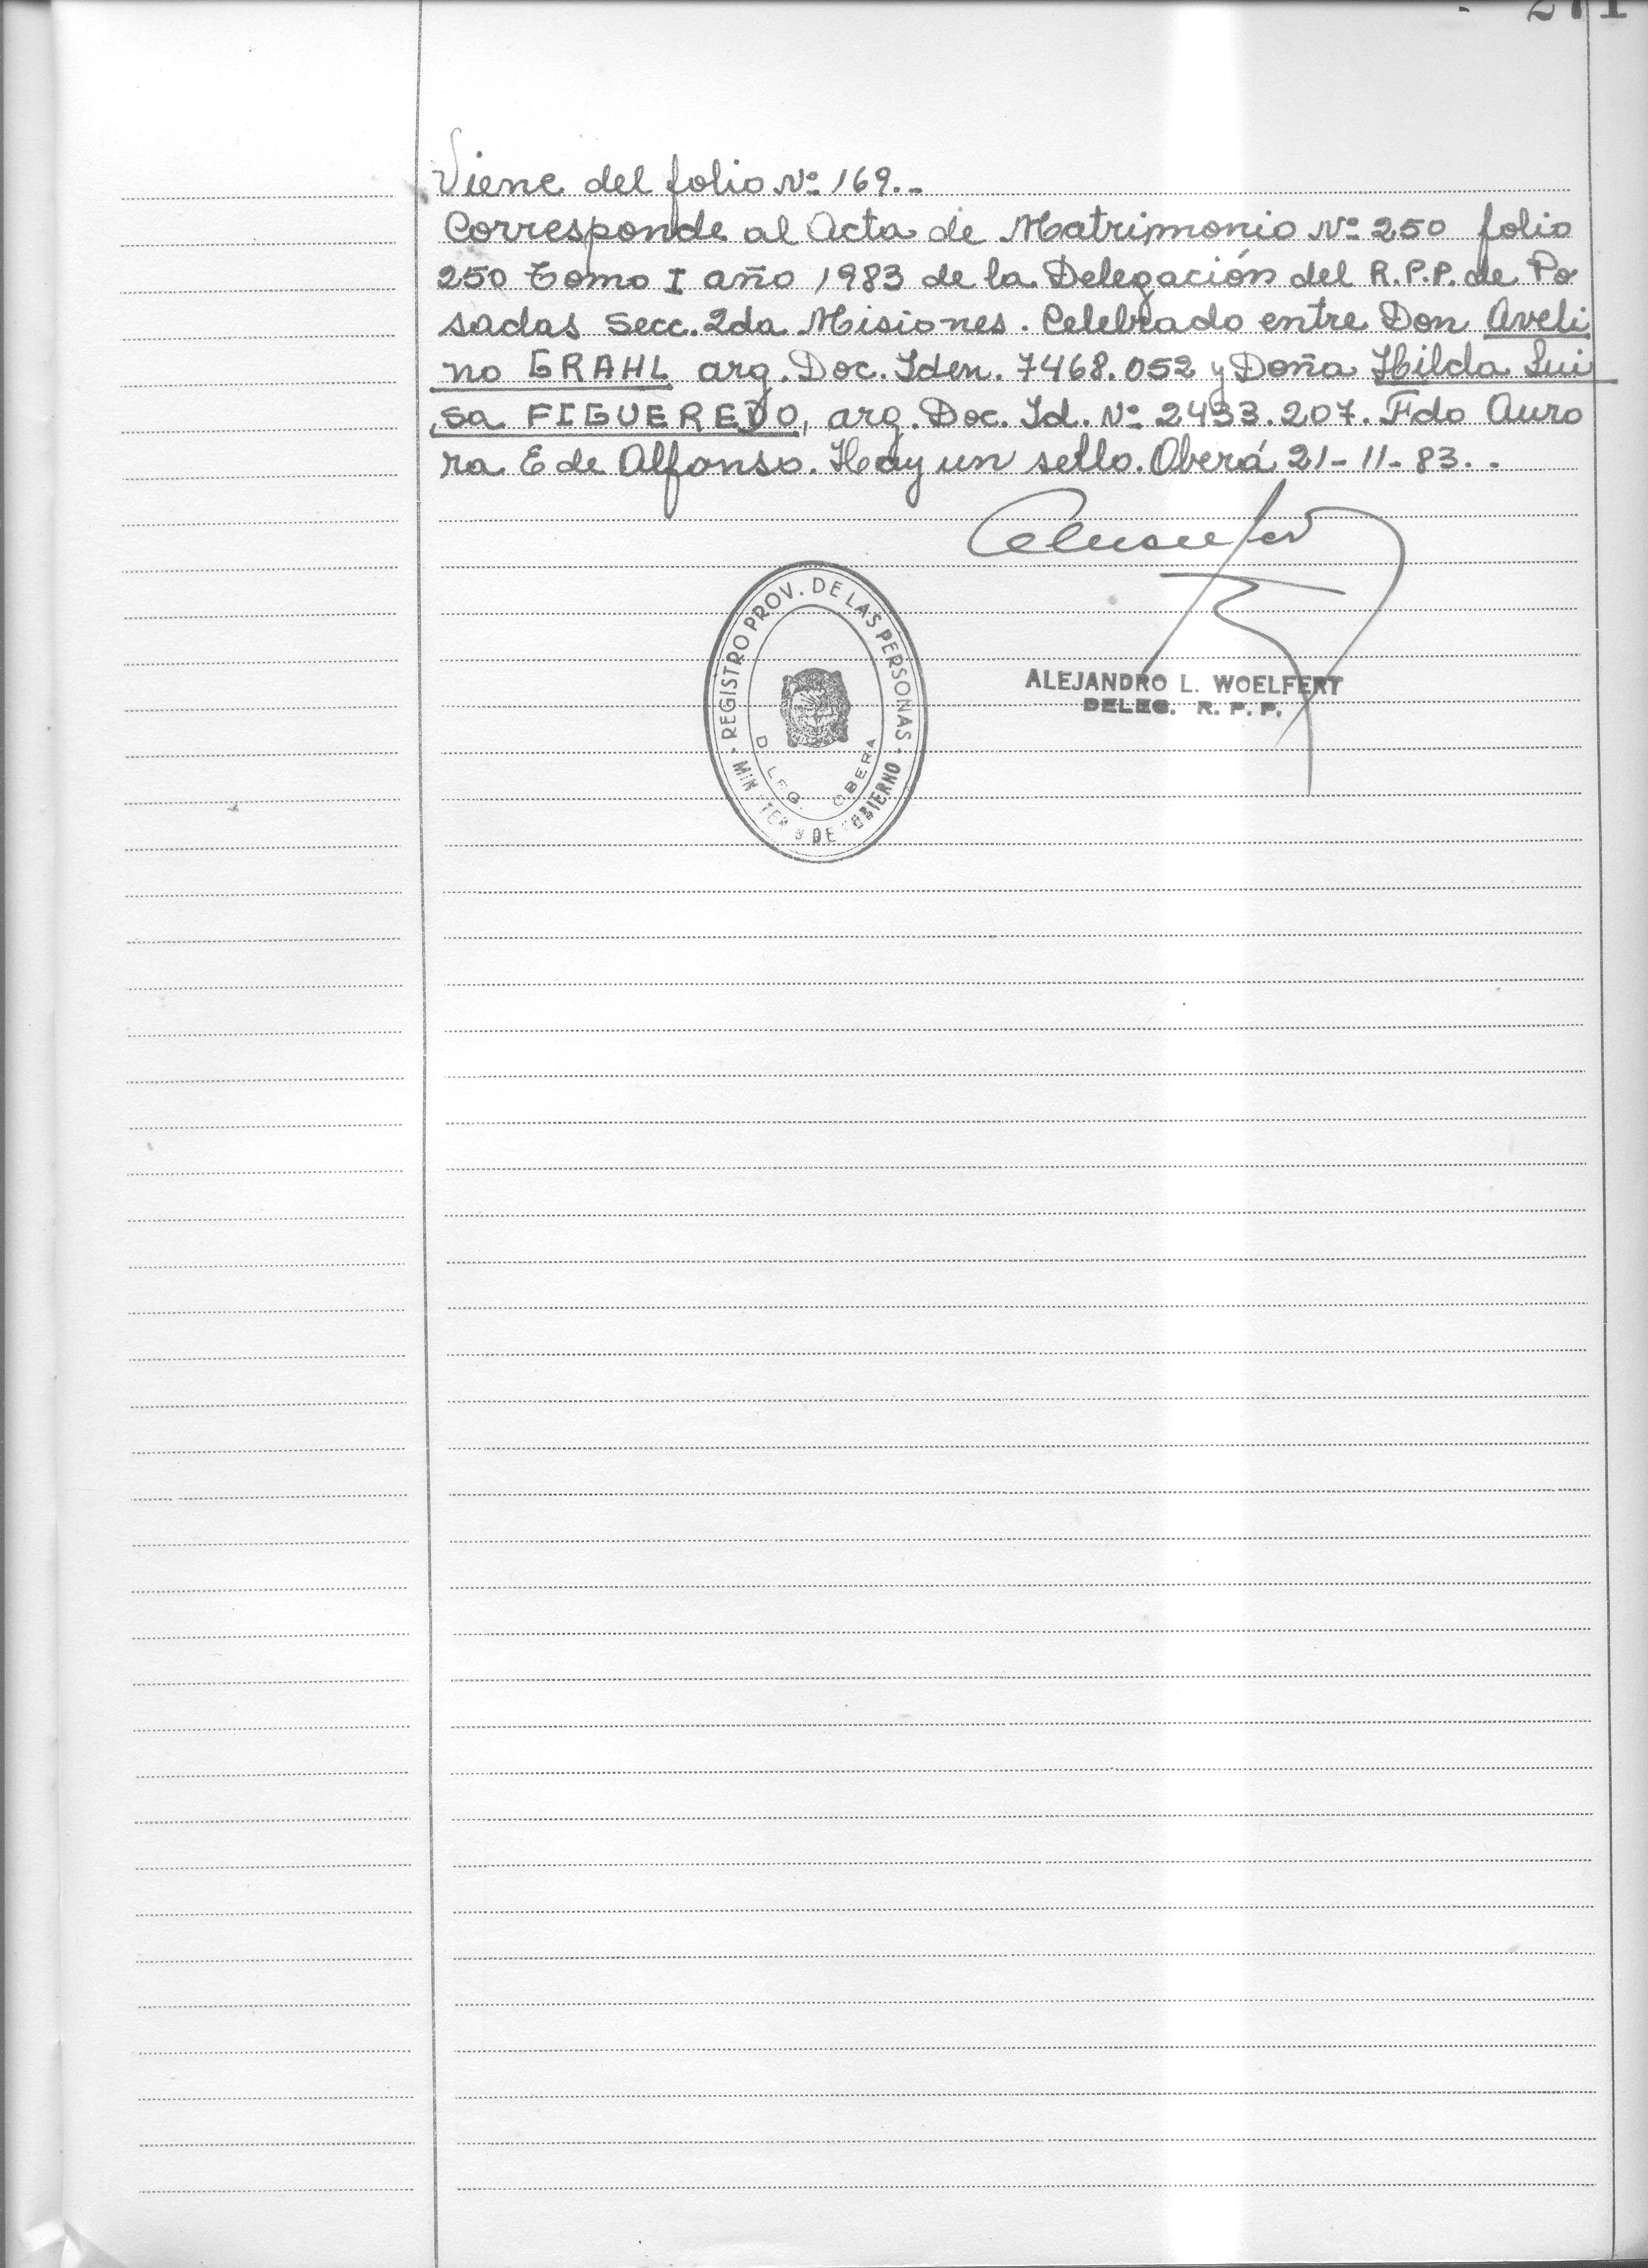 271
Viene del folio Nº 169.-
Corresponde al Acta de Matrimonio Nº 250 folio
250 Tomo I año 1983 de la Delegación del R.P.P. de Po
sadas Secc. 2da Misiones. Celebrado entre Don Aveli
no GRAHL arg. Doc. Iden. 7468.052 y Doña Hilda Lui
sa FIGUEREDO, arg. Doc. Id. Nº 2433.207. Fdo Auro
ra E de Alfonso. Hay un sello. Oberá 21-11-83.-
REGISTRO PROV. DE LAS PERSONAS
MIN TER O DE OBIERNO
D LEG. OBERA
ALEJANDRO L. WOELFERT
DELEG. R. P. P.